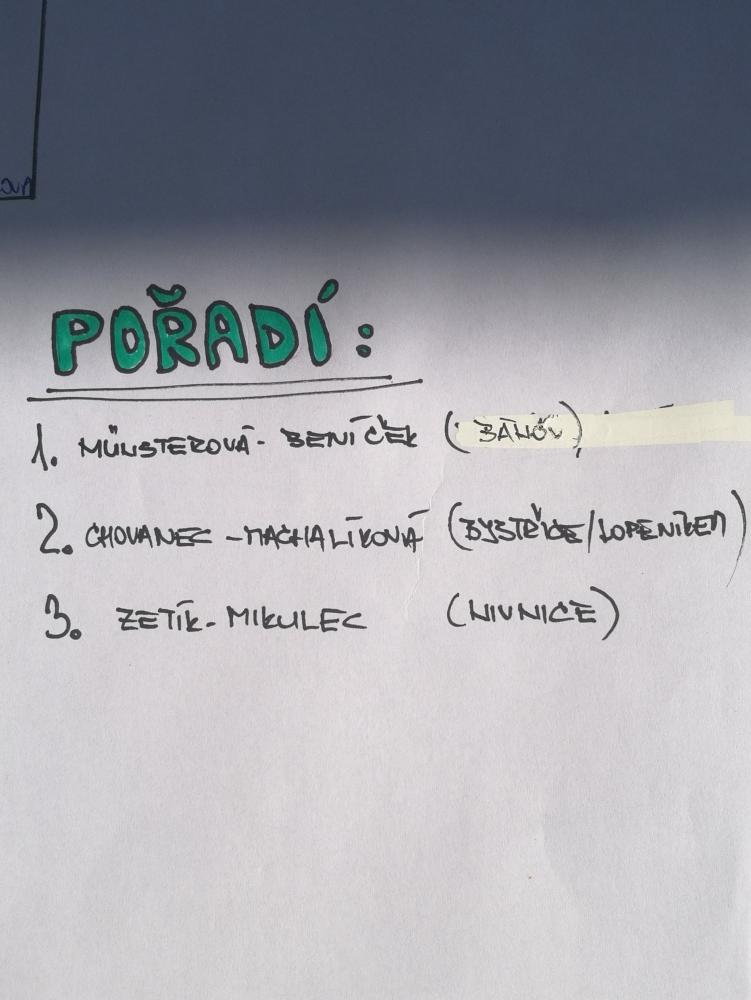 POŘADÍ:
1. MÜNSTEROVÁ - BENÍČEK (BÁNOV)
2. CHOVANEC - MACHALÍKOVÁ (BYSTŘICE/LOPENÍKEM)
3. ZETÍK - MIKULEC (NIVNICE)